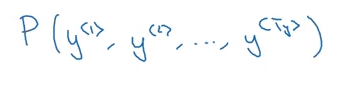 P(y^{<1>}, y^{<2>}, ..., y^{<T_y>})